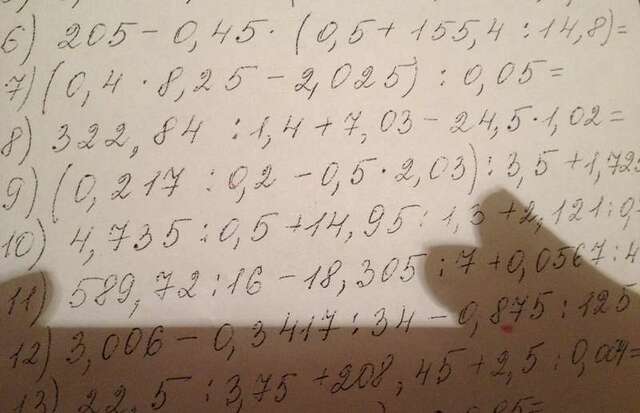 6) 205 - 0,45 · (0,5 + 155,4 : 14,8) =
7) (0,4 · 8,25 - 2,025) : 0,05 =
8) 322,84 : 1,4 + 7,03 - 24,5 · 1,02 =
9) (0,217 : 0,2 - 0,5 · 2,03) : 3,5 + 1,725
10) 4,735 : 0,5 + 14,95 : 1,3 + 2,121 : 0,
11) 589,72 : 16 - 18,305 : 7 + 0,0567 : 4
12) 3,006 - 0,3417 : 34 - 0,875 : 125
13) 22,5 : 3,75 + 208,45 + 2,5 : 0,004 =